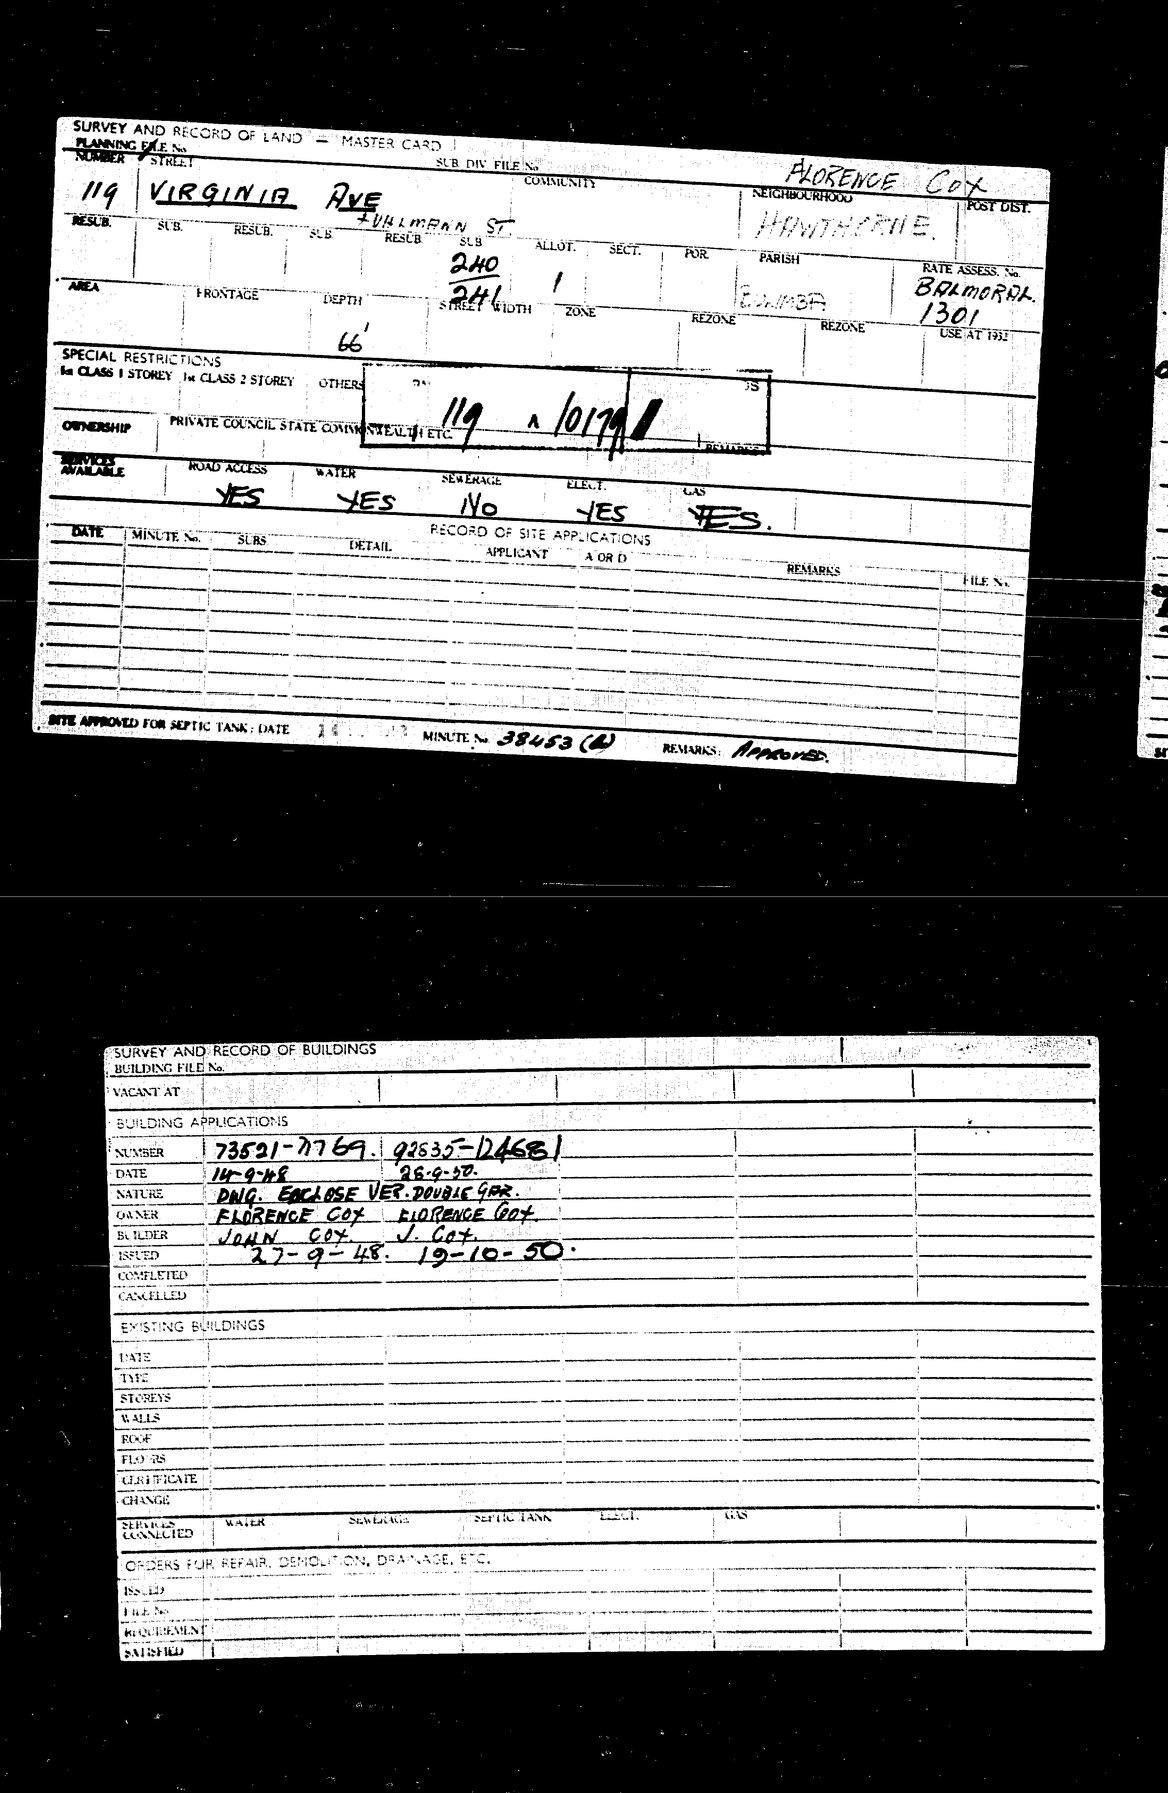 SURVEY AND RECORD OF LAND — MASTER CARD
PLANNING FILE No SUB. DIV. FILE No. FLORENCE COX
NUMBER STREET COMMUNITY NEIGHBOURHOOD POST DIST.
119 VIRGINIA AVE HAWTHORNE.
RESUB. SUB. RESUB. SUB. RESUB. SUB ALLOT. SECT. POR. PARISH RATE ASSESS. No.
240
241 1 BULIMBA BALMORAL.
1301
AREA FRONTAGE DEPTH STREET WIDTH ZONE REZONE REZONE USE AT 1932
66'
SPECIAL RESTRICTIONS
1st CLASS 1 STOREY 1st CLASS 2 STOREY OTHERS
119 10179
OWNERSHIP PRIVATE COUNCIL STATE COMMONWEALTH ETC. REMARKS
SERVICES AVAILABLE ROAD ACCESS WATER SEWERAGE ELECT. GAS
YES YES NO YES YES.
RECORD OF SITE APPLICATIONS
DATE MINUTE No. SUBS DETAIL APPLICANT A OR D REMARKS FILE No.
SITE APPROVED FOR SEPTIC TANK: DATE MINUTE No 38453 (A) REMARKS: APPROVED.
SURVEY AND RECORD OF BUILDINGS
BUILDING FILE No.
VACANT AT
BUILDING APPLICATIONS
NUMBER 73521-77769. 92835-12468
DATE 14-9-48 28-9-50.
NATURE DWG. ENCLOSE VER. DOUBLE GAR.
OWNER FLORENCE COX FLORENCE COX.
BUILDER JOHN COX. J. COX.
ISSUED 27-9-48. 19-10-50.
COMPLETED
CANCELLED
EXISTING BUILDINGS
DATE
TYPE
STOREYS
WALLS
ROOF
FLOORS
CERTIFICATE
CHANGE
SERVICES CONNECTED WATER SEWERAGE SEPTIC TANK ELECT. GAS
ORDERS FOR REPAIR, DEMOLITION, DRAINAGE, ETC.
ISSUED
FILE No.
REQUIREMENT
SATISFIED